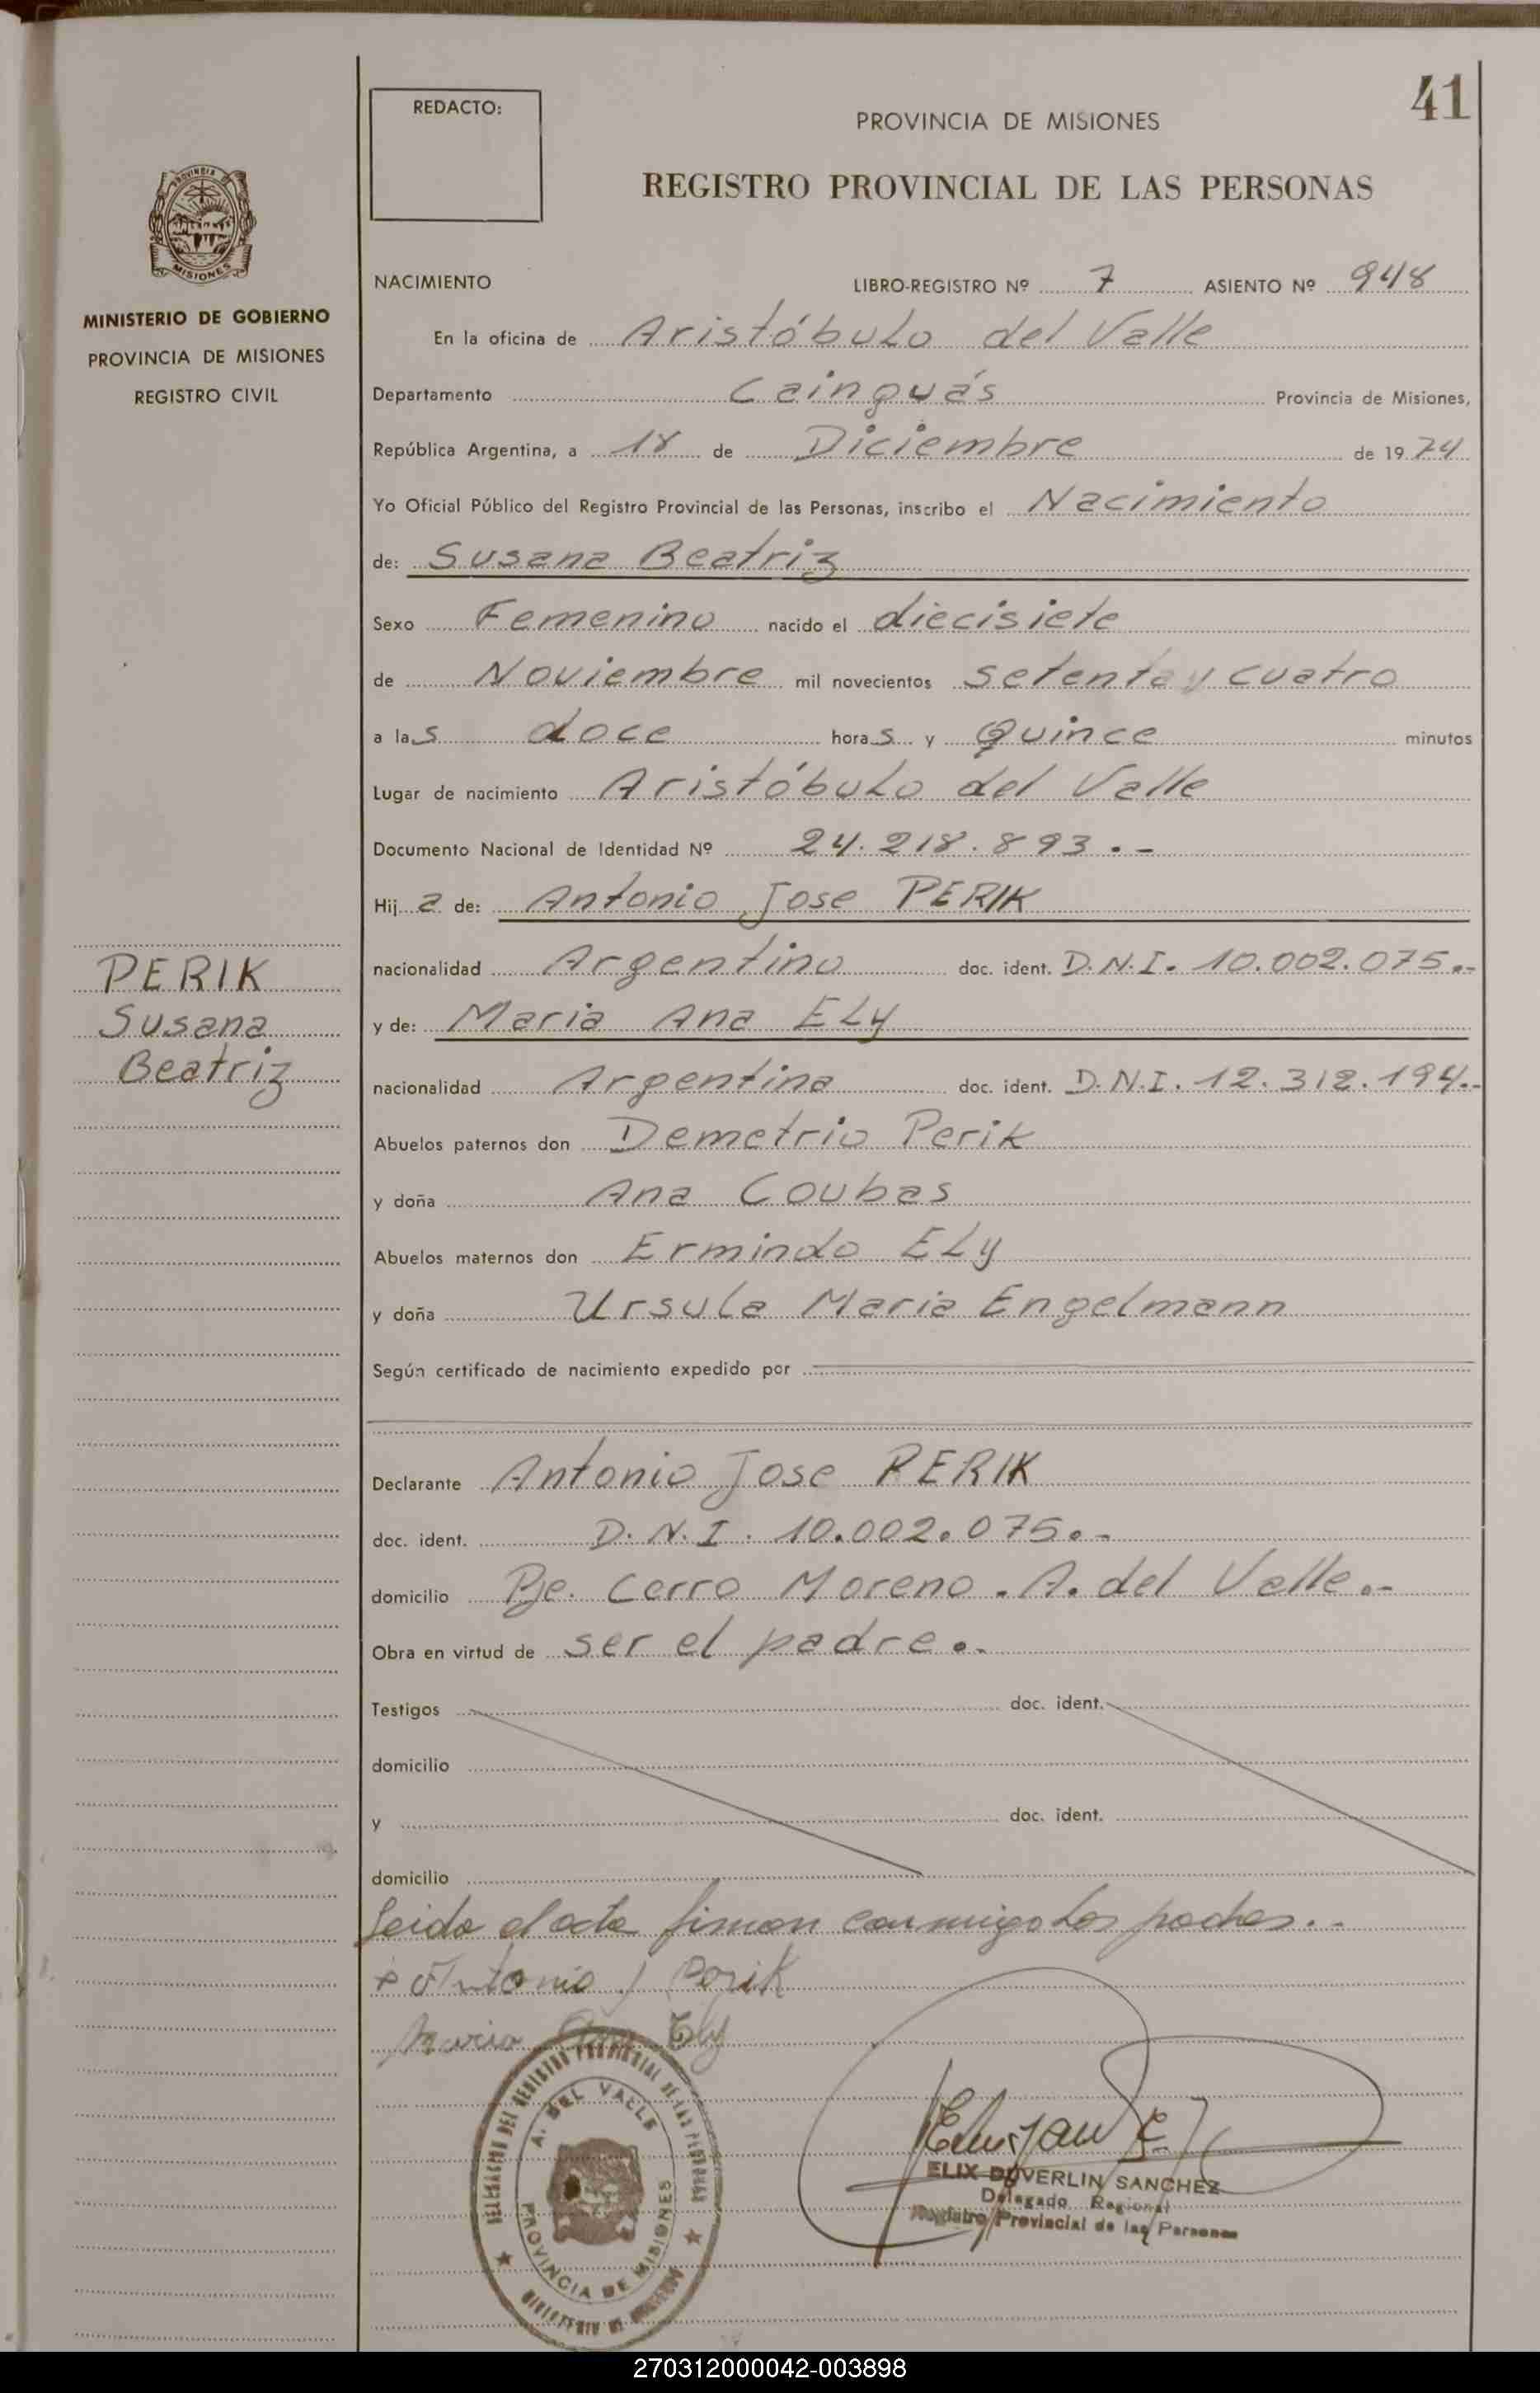 41
REDACTO:
PROVINCIA DE MISIONES
REGISTRO PROVINCIAL DE LAS PERSONAS
MISIONES
MINISTERIO DE GOBIERNO
PROVINCIA DE MISIONES
REGISTRO CIVIL
NACIMIENTO LIBRO-REGISTRO Nº 7 ASIENTO Nº 948
En la oficina de Aristóbulo del Valle
Departamento Cainguás Provincia de Misiones,
República Argentina, a 18 de Diciembre de 1974
Yo Oficial Público del Registro Provincial de las Personas, inscribo el Nacimiento
de: Susana Beatriz
Sexo Femenino nacido el diecisiete
de Noviembre mil novecientos setenta y cuatro
a las doce horas y Quince minutos
Lugar de nacimiento Aristóbulo del Valle
Documento Nacional de Identidad Nº 24.218.893.-
Hija de: Antonio Jose PERIK
nacionalidad Argentino doc. ident. D.N.I. 10.002.075.-
y de: Maria Ana ELy
nacionalidad Argentina doc. ident. D.N.I. 12.312.194.-
Abuelos paternos don Demetrio Perik
y doña Ana Coubas
Abuelos maternos don Ermindo ELy
y doña Ursula Maria Engelmann
Según certificado de nacimiento expedido por
Declarante Antonio Jose PERIK
doc. ident. D.N.I. 10.002.075.-
domicilio Pje. Cerro Moreno. A. del Valle.-
Obra en virtud de ser el padre.-
Testigos doc. ident.
domicilio
y doc. ident.
domicilio
Leido el acta firman conmigo los padres.-
Antonio J Perik
Maria Ana Ely
PERIK
Susana
Beatriz
DELEGACION DEL REGISTRO PROVINCIAL DE LAS PERSONAS
A. DEL VALLE
PROVINCIA DE MISIONES
MINISTERIO DE GOBIERNO
ELIX DUVERLIN SANCHEZ
Delegado Regional
Registro Provincial de las Personas
270312000042-003898